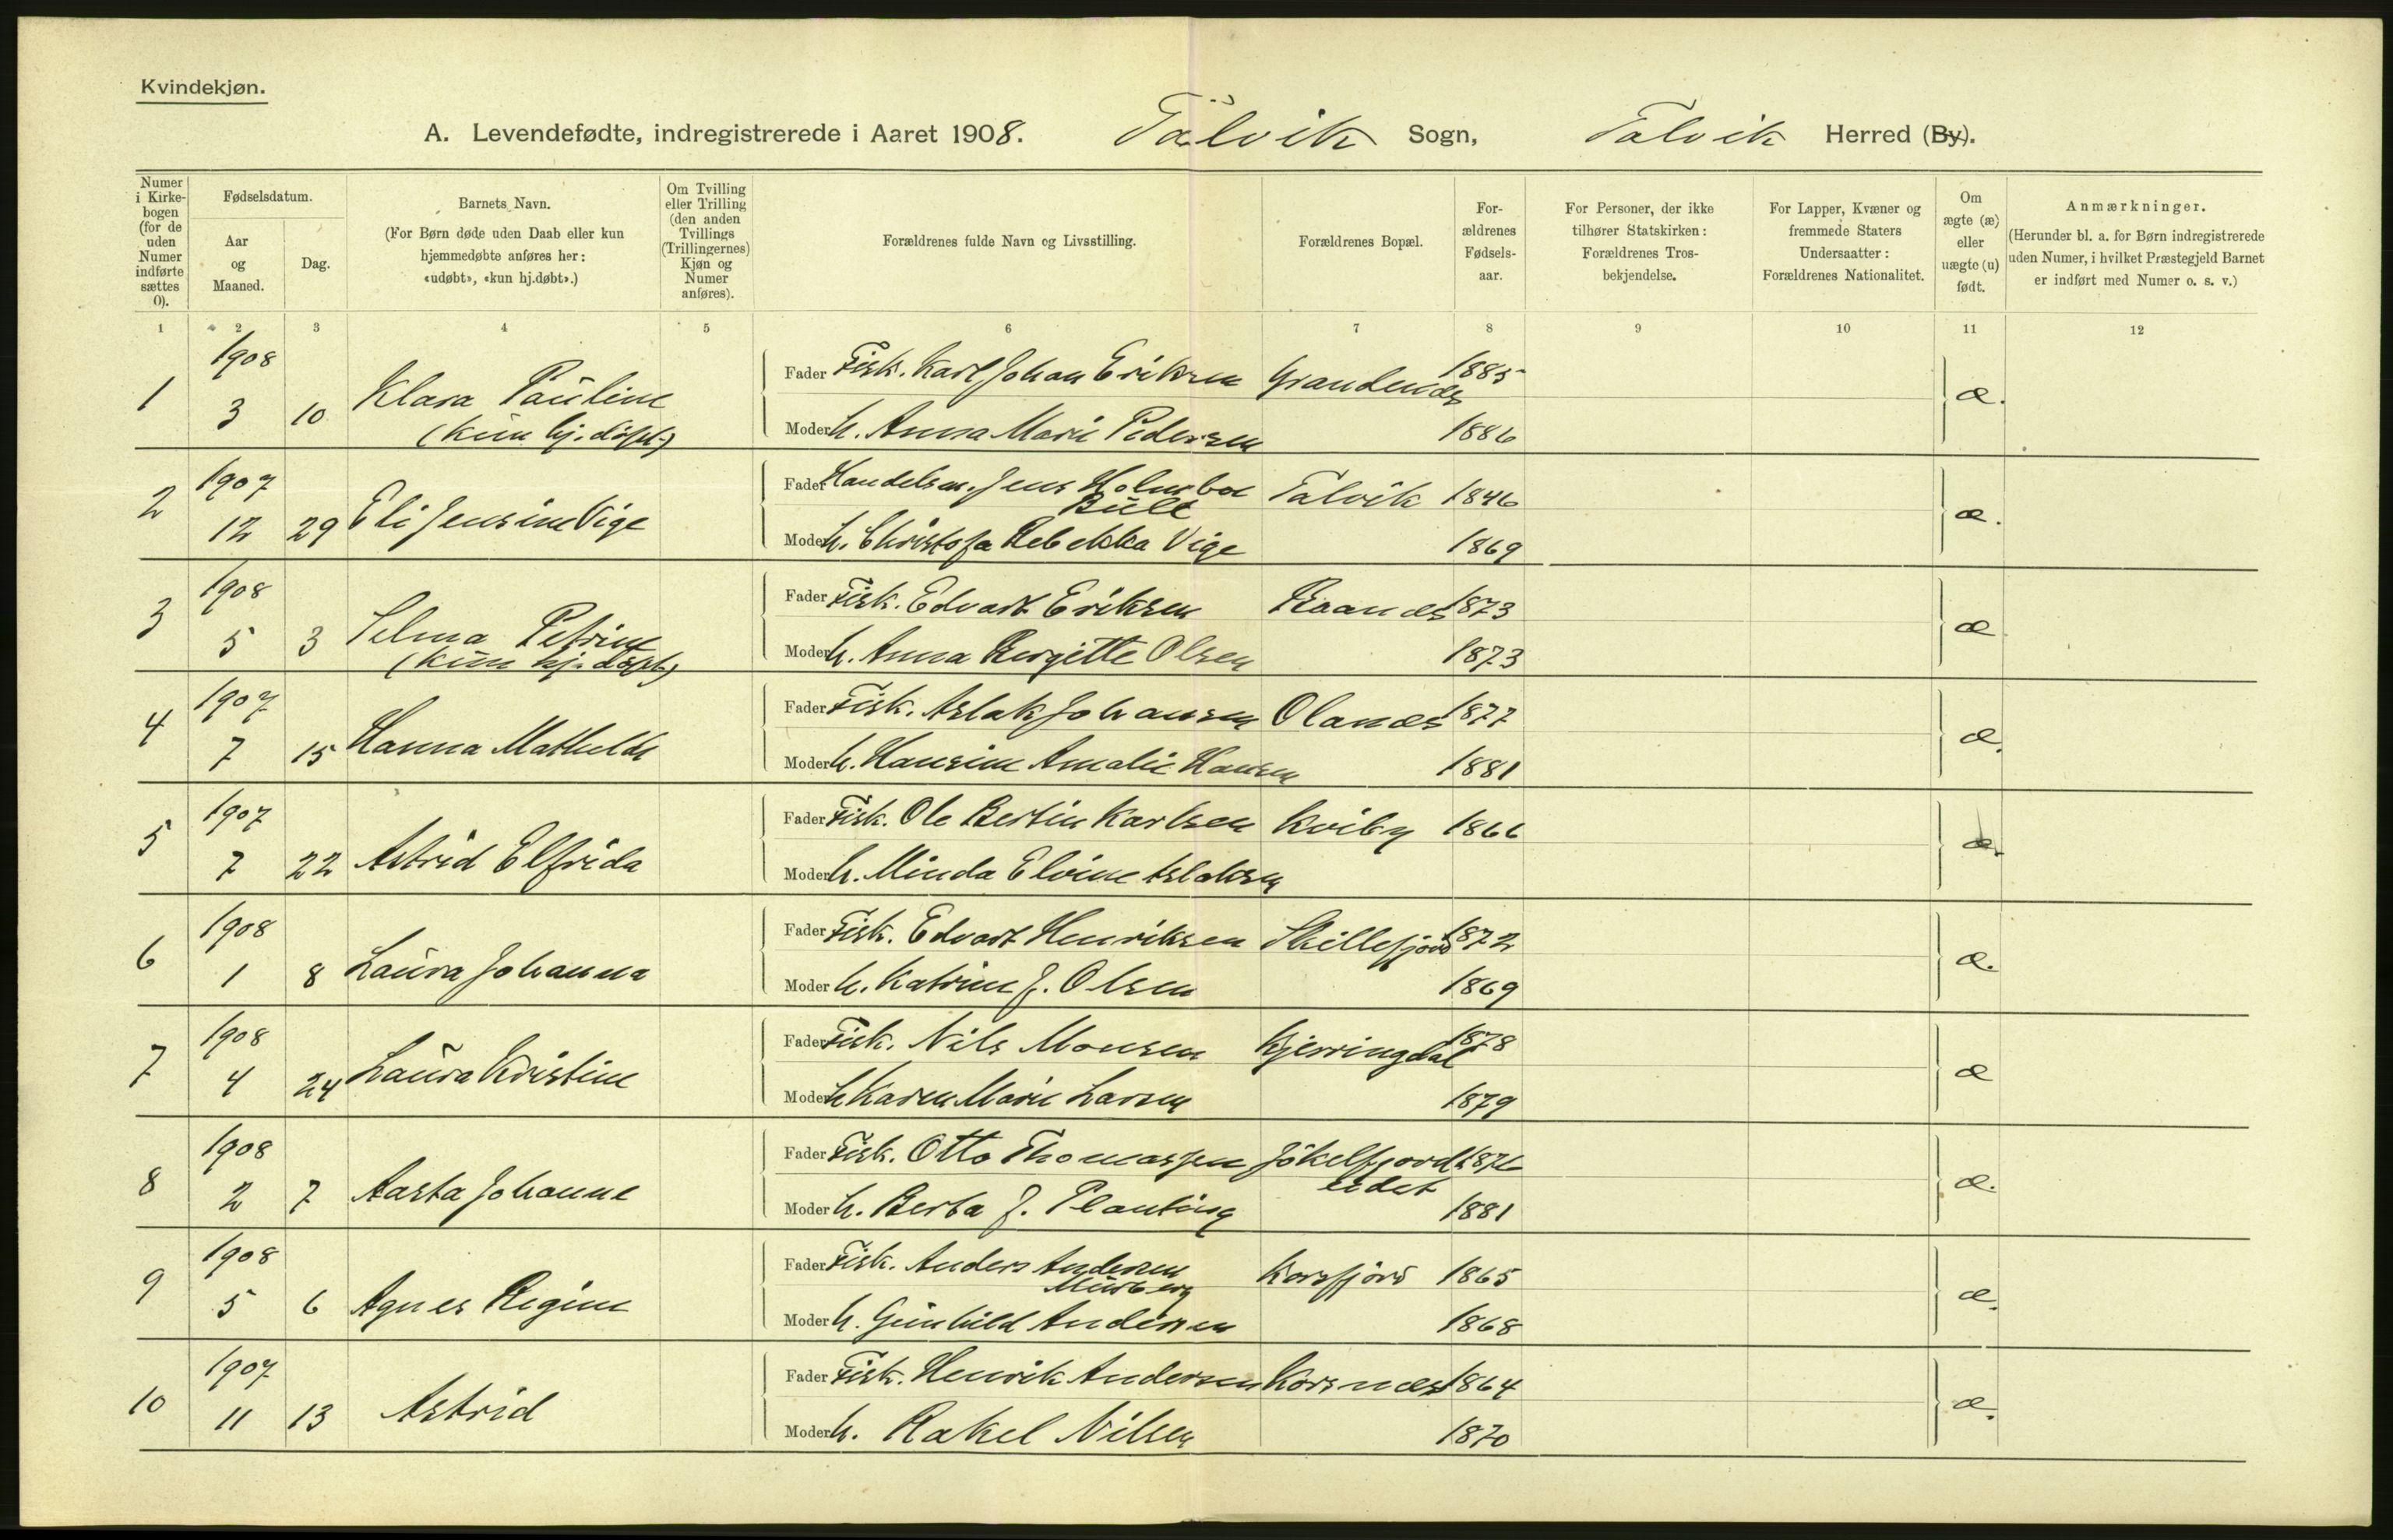 Kvindekjøn.
A. Levendefødte, indregistrerede i Aaret 1908. Talvik Sogn, Talvik Herred (By).
Numer i Kirke-bogen (for de uden Numer indførte sættes 0).
Fødselsdatum.
Aar og Maaned.
Dag.
Barnets Navn.
(For Børn døde uden Daab eller kun hjemmedøbte anføres her: «udøbt», «kun hj.døbt».)
Om Tvilling eller Trilling (den anden Tvillings (Trillingernes) Kjøn og Numer anføres).
Forældrenes fulde Navn og Livsstilling.
Forældrenes Bopæl.
For-ældrenes Fødsels-aar.
For Personer, der ikke tilhører Statskirken: Forældrenes Tros-bekjendelse.
For Lapper, Kvæner og fremmede Staters Undersaatter: Forældrenes Nationalitet.
Om ægte (æ) eller uægte (u) født.
Anmærkninger.
(Herunder bl. a. for Børn indregistrerede uden Numer, i hvilket Præstegjeld Barnet er indført med Numer o. s. v.)
1 2 3 4 5 6 7 8 9 10 11 12
1908
Fader Fisk. Karl Johan Eriksen Grandenæs 1885
1 3 10 Klara Pauline æ.
(kun hj. døbt)
Moder h. Anna Marie Pedersen 1886
1907
Fader Handelsm. Jens Holmboe Bull Talvik 1846
2 12 29 Eli Jensine Vige æ.
Moder h. Christofa Rebekka Vige 1869
1908
Fader Fisk. Edvart Eriksen Raanæs 1873
3 5 3 Selma Petrine æ
(kun hj. døbt)
Moder h. Anna Bergitte Olsen 1873
1907
Fader Fisk. Aslak Johansen Olanæs 1877
4 7 15 Hanna Mathilde æ.
Moder h. Hansine Amalie Hansen 1881
1907
Fader Fisk. Ole Bertin Karlsen Kviby 1866
5 7 22 Astrid Elfrida æ.
Moder h. Minda Elvine Aslaksen
1908
Fader Fisk. Edvart Henriksen Skillefjord 1872
6 1 8 Laura Johanna æ.
Moder h. Katrine J. Olsen 1869
1908
Fader Fisk. Nils Monsen Kjerringdal 1878
7 4 24 Laura Kristine æ
Moder h Karen Marie Larsen 1879
1908
Fader Fisk. Otto Thomassen Jökelfjordeidet 1876
8 2 7 Aasta Johanne æ.
Moder h. Berta J. Planting 1881
1908
Fader Fisk. Anders Andersen Murberg Korsfjord 1865
9 5 6 Agnes Regine æ.
Moder h. Gunhild Andersen 1868
1907
Fader Fisk. Henrik Andersen Korsnæs 1864
10 11 13 Astrid æ.
Moder h. Rakel Nilsen 1870